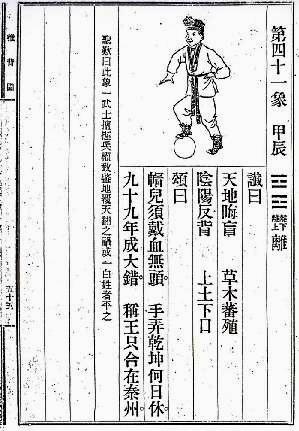 第四十一象 甲辰 ䷝ 離下離上 離
讖曰
天地晦盲 草木蕃殖
陰陽反背 上土下日
頌曰
帽兒須戴血無頭。手弄乾坤何日休
九十九年成大錯。稱王只合在秦州。
聖歎曰此象一武士擅握兵權致肇地覆天翻之禍或一白姓者平之
推背圖